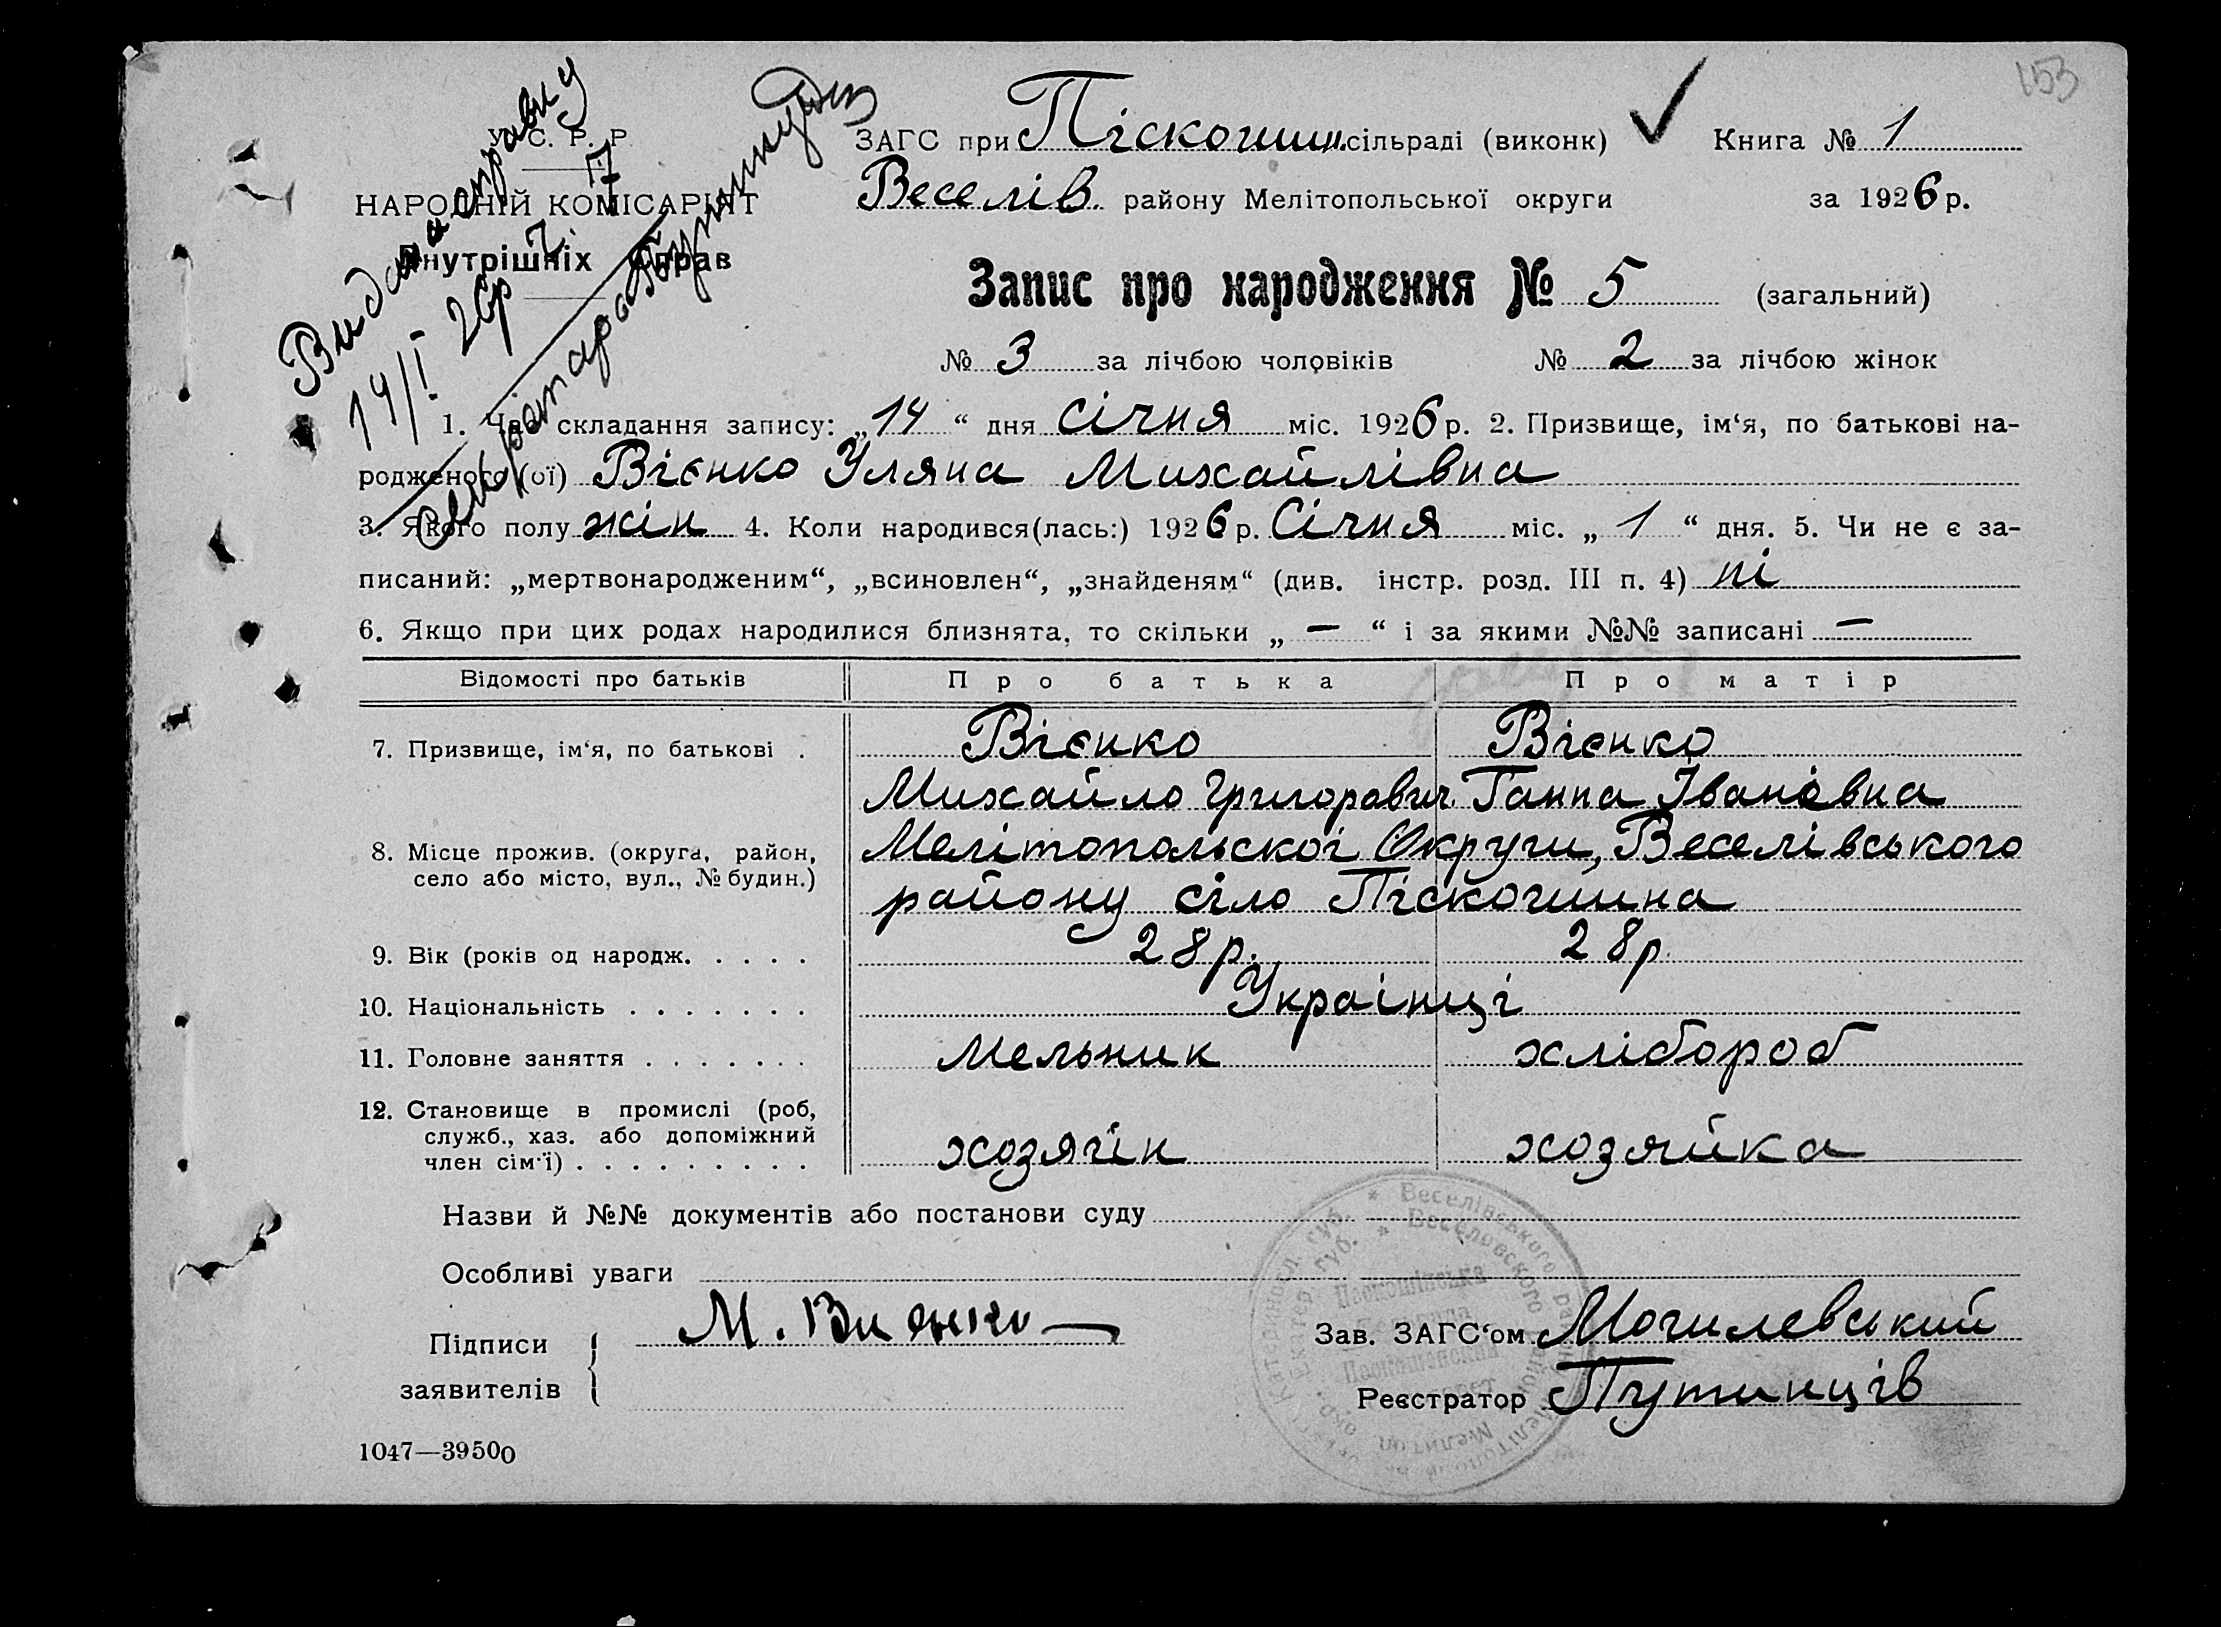 153
У. С. Р. Р.
НАРОДНІЙ КОМІСАРІЯТ
Внутрішніх Справ
Видана справку
14/I 26р
ЗАГС при Піскошин. сільраді (виконк)
Книга № 1
Веселів. району Мелітопольської округи
за 1926 р.
Запис про народження № 5 (загальний)
№ 3 за лічбою чоловіків № 2 за лічбою жінок
1. Час складання запису: „14“ дня Січня міс. 1926 р. 2. Призвище, ім‘я, по батькові на-
родженого (ої) Вієнко Уляна Михайлівна
3. Якого полу жін 4. Коли народився(лась:) 1926 р. Січня міс. „1“ дня. 5. Чи не є за-
писаний: „мертвонародженим“, „всиновлен“, „знайденям“ (див. інстр. розд. III п. 4) ні
6. Якщо при цих родах народилися близнята, то скільки „ — “ і за якими №№ записані —
Відомості про батьків Про батька Про матір
7. Призвище, ім‘я, по батькові . Вієнко Вієнко
Михайло Григорович Ганна Івановна
8. Місце прожив. (округа, район, Мелітопольскої Округи, Веселівського
село або місто, вул., № будин.) району сіло Піскошина
9. Вік (років од народж. . . . . 28 р. 28 р.
10. Національність . . . . . . . Українці
11. Головне заняття . . . . . . . Мельник хлібороб
12. Становище в промислі (роб,
служб., хаз. або допоміжний
член сім‘ї) . . . . . . . . . хозяїін хозяйка
Назви й №№ документів або постанови суду
Особливі уваги
Підписи
заявителів
М. Виенко
Зав. ЗАГС‘ом Могилевський
Реєстратор Путинців
1047—39500